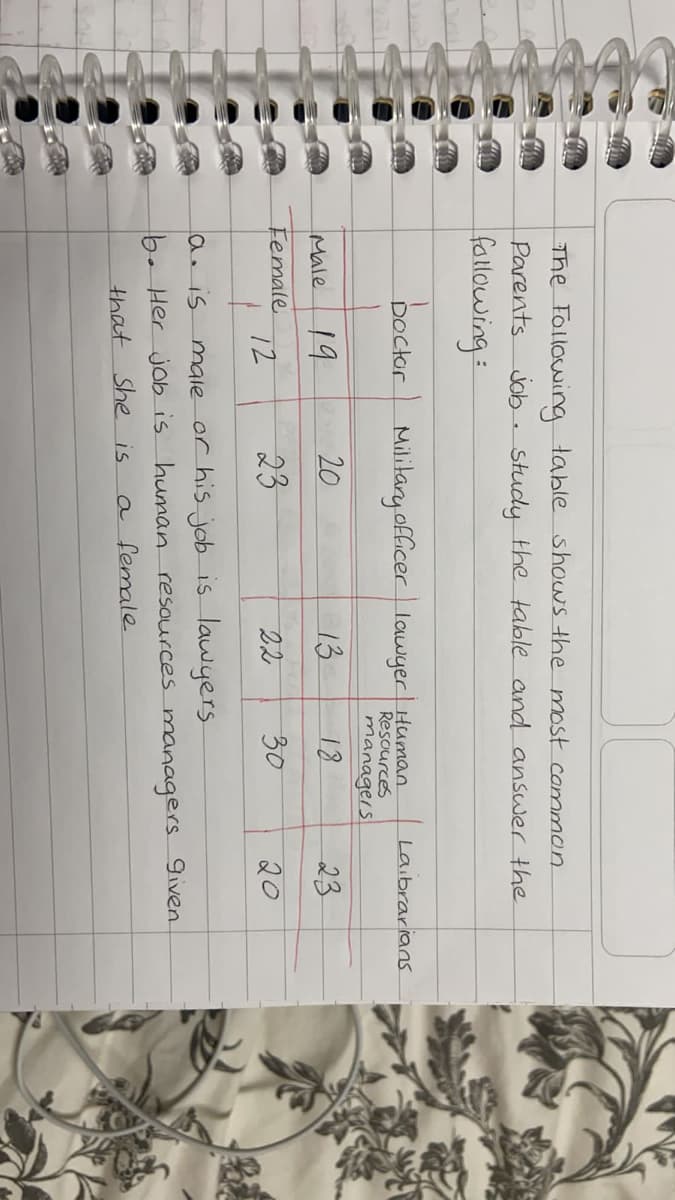 The Following table shows the most common
Parents Job. study the table and answer the
following:
Doctor Military officer lawyer Human Resources managers Laibrarians
Male 19 20 13 18 23
Female 12 23 22 30 20
a. is male or his job is lawyers
b. Her job is human resources managers given
that she is a female